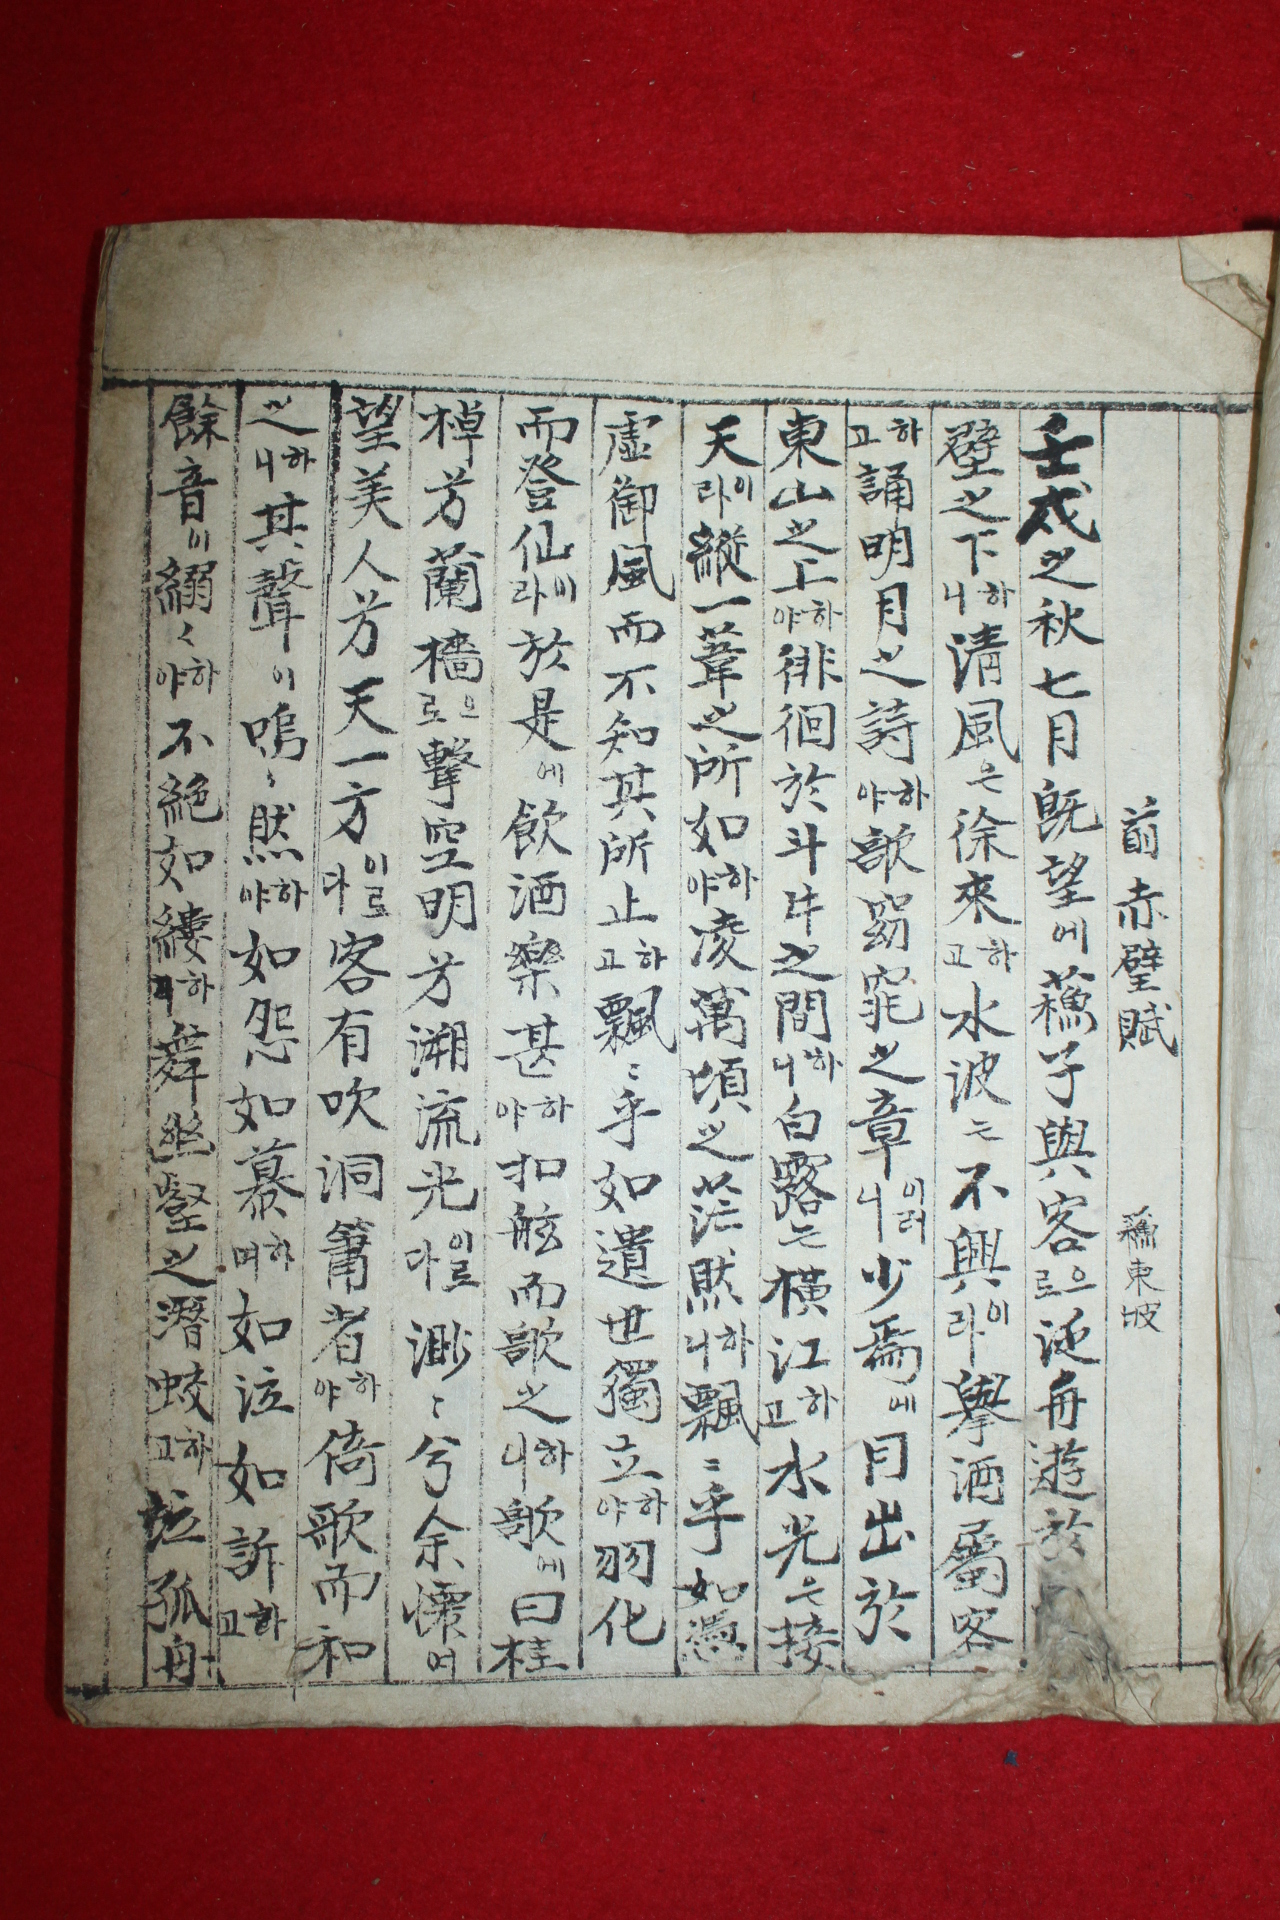 前赤壁賦 蘓東坡
壬戌之秋七月旣望에蘓子與客으로泛舟遊於
壁之下하니淸風은徐來하고水波는不興이라擧酒屬客
하고誦明月之詩하야歌窈窕之章이러니少焉에月出於
東山之上하야徘徊於斗牛之間하니白露는橫江하고水光은接
天이라縱一葦之所如하야凌萬頃之茫然하니飄〻乎如憑
虛御風而不知其所止하고飄〻乎如遺世獨立하야羽化
而登仙이라於是에飮酒樂甚하야扣舷而歌之하니歌에曰桂
棹芳蘭檣으로擊空明芳溯流光이로다渺〻兮余懷여
望美人芳天一方이로다客有吹洞簫者하야倚歌而和
之하니其聲이嗚〻然하야如怨如慕하며如泣如訴하고
餘音이嫋〻하야不絶如縷하니舞幽壑之潛蛟하고泣孤舟